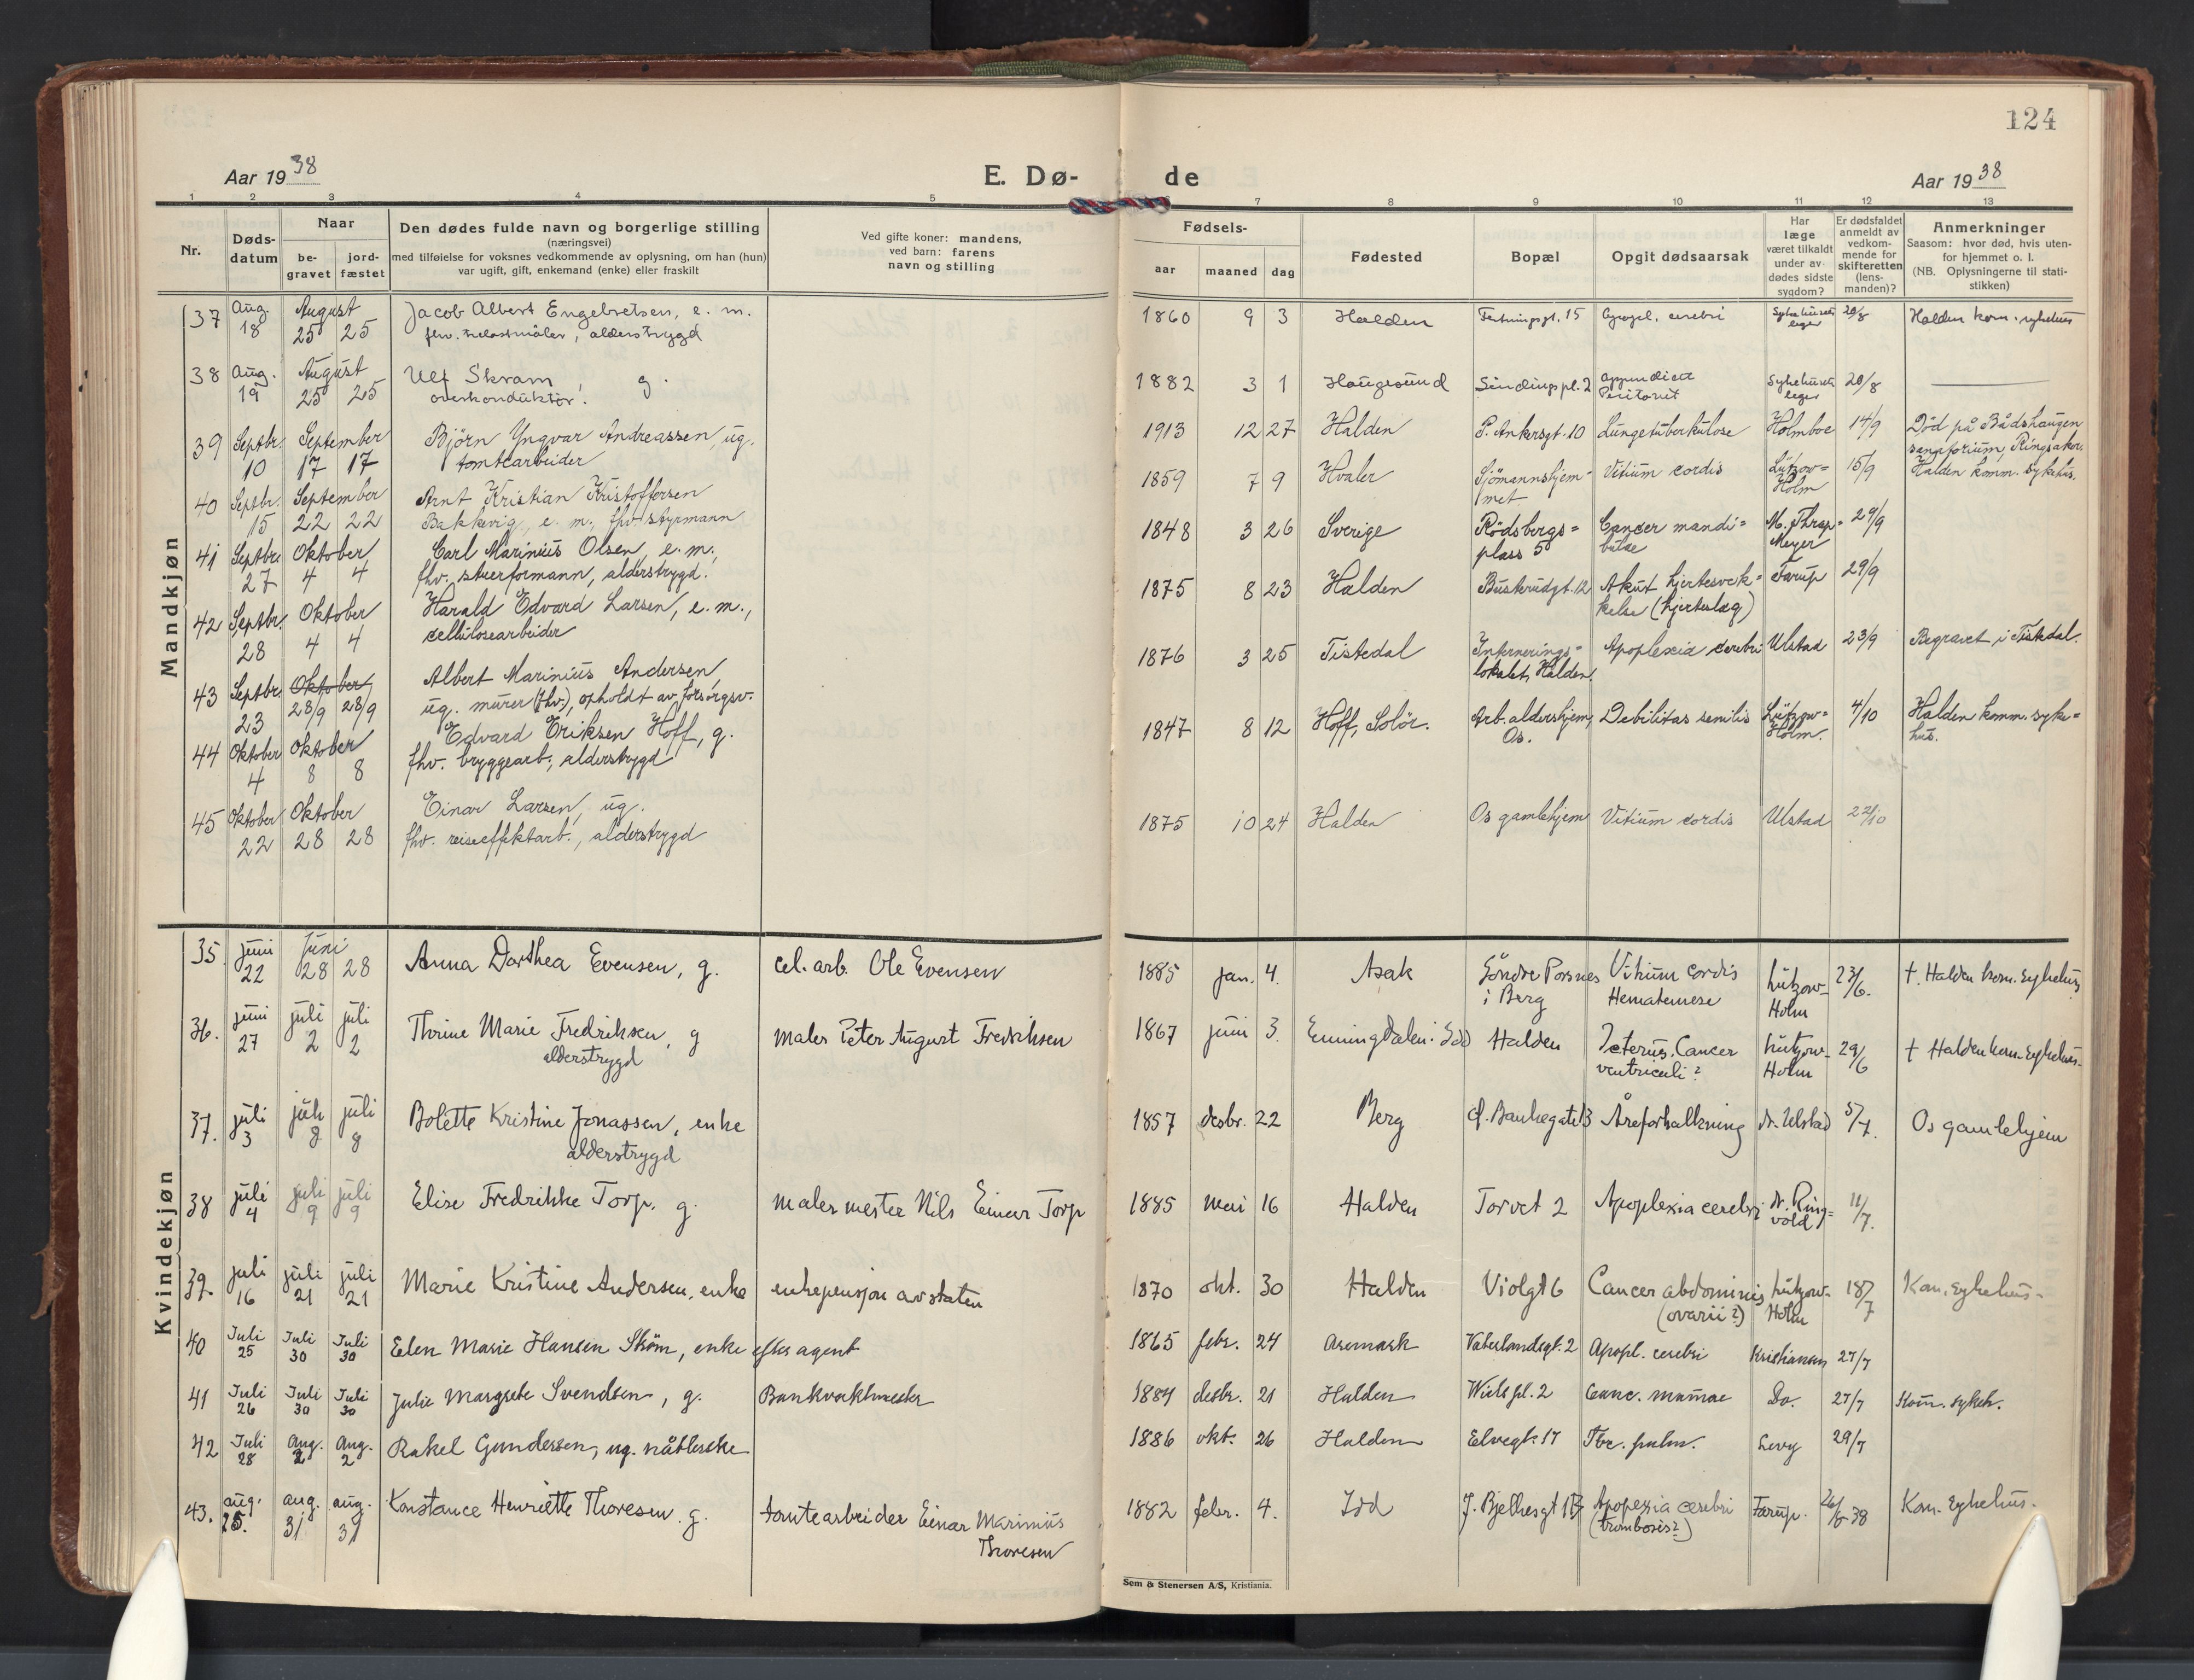 124
Aar 1938
E. Dø-
de
Aar 1938
1 2 3 4 5 7 8 9 10 11 12 13
Nr.
Døds-
datum
Naar
be-
gravet
jord-
fæstet
Den dødes fulde navn og borgerlige stilling
(næringsvei)
med tilføielse for voksnes vedkommende av oplysning, om han (hun)
var ugift, gift, enkemand (enke) eller fraskilt
Ved gifte koner: mandens,
ved barn: farens
navn og stilling
Fødsels-
aar maaned dag
Fødested
Bopæl
Opgit dødsaarsak
Har
læge
været tilkaldt
under av-
dødes sidste
sygdom?
Er dødsfaldet
anmeldt av
vedkom-
mende for
skifteretten
(lens-
manden)?
Anmerkninger
Saasom: hvor død, hvis uten-
for hjemmet o. l.
(NB. Oplysningerne til stati-
stikken)
Mandkjøn
37 Aug. August Jacob Albert Engebretsen, e. m. 1860 9 3 Halden Festningsgt. 15 Apopl. cerebri Sykehusets 20/8 Halden kom. sykehus
18 25 25 fhv. trelastmåler, alderstrygd leger
38 Aug. August Ulf Skram g. 1882 3 1 Haugesund Sindings pl. 2 appendicit Sykehusets 20/8
19 25 25 overkonduktør. Peritonit leger
39 Septbr. September Bjørn Yngvar Andreassen, ug. 1913 12 27 Halden P. Ankersgt. 10 Lungetuberkulose Holmboe 14/9 Død på Bådshaugen
10 17 17 tomtearbeider sanatorium, Ringsaker
40 Septbr. September Arnt Kristian Kristoffersen 1859 7 9 Hvaler Sjömannshjem- Vitium cordis Lützow= 15/9 Halden komm. sykehus.
15 22 22 Bakkevig, e. m., fhv. styrmann met Holm
41 Septbr. Oktober Carl Marinius Olsen, e. m., 1848 3 26 Sverige Rödsbergs= Cancer mandi= M. Thrap= 29/9
27 4 4 fhv. stuerformann, alderstrygd. plass 5 bulae Meyer
42 Septbr. Oktober Harald Edvard Larsen, e. m., 1875 8 23 Halden Busterudgt. 12 Akut hjertesvek= Farup 29/9
28 4 4 cellulosearbeider kelse (hjerteslag)
43 Septbr. Oktober Albert Marinius Andersen, 1876 3 25 Tistedal Internerings= Apoplexia cerebri Ulstad 23/9 Begravet i Tistedal.
23 28/9 28/9 ug. murer (fhv.), opholdt av forsorgsv. lokalet, Halden
44 Oktober Oktober Edvard Eriksen Hoff, g. 1847 8 12 Hoff, Solör. Arb. aldershjem, Debilitas senilis Lützow= 4/10 Halden komm. syke=
4 8 8 fhv. bryggearb., alderstrygd Os. Holm. hus.
45 Oktober Oktober Einar Larsen, ug. 1875 10 24 Halden Os gamlehjem Vitium cordis Ulstad 22/10
22 28 28 fhv. reiseeffektarb., alderstrygd
Kvindekjøn
35. juni juni Anna Dorthea Evensen, g. cel. arb. Ole Evensen 1885 jan. 4. Asak Söndre Porsnes Vitium cordis Lützow- 23/6. †. Halden kom. sykehus
22 28 28 i Berg Hematemese Holm
36. juni juli juli Thrine Marie Fredriksen, g maler Peter August Fredriksen 1867 juni 3. Enningdalen i Idd Halden Icterus. Cancer Lützow- 29/6 † Halden kom. sykehus.
27 2 2 alderstrygd ventriculi? Holm
37. juli juli juli Bolette Kristine Jonassen, enke 1857 desbr. 22 Berg Åreforkalkning dr. Ulstad 5/7. Os gamlehjem
3 8 8 alderstrygd
38 juli juli juli Elise Fredrikke Torp. g. malermester Nils Einar Torp 1885 mai 16 Halden Torvet 2 Apoplexia cerebri dr. Ring= 11/7.
4 9 9 vold
39. juli juli juli Marie Kristine Andersen, enke enkepensjon av staten 1870 okt. 30 Halden Violgt 6 Cancer abdominis Lützow- 18/7 Kom. sykehus.
16 21 21 (ovarii?) Holm
40 Juli Juli Juli Elen Marie Hansen Strøm, enke efter agent 1865 febr. 24 Aremark Vaterlandsgt. 2 Apopl. cerebri Kristiansen 27/7
25 30 30
41 Juli Juli Juli Julie Margrete Svendsen, g. Bankvaktmester 1884 desbr. 21 Halden Wiels pl. 2 Canc. mamae Do. 27/7 Kom. sykeh.
26 30 30
42 Juli Aug. Aug. Rakel Gundersen, ug. nåtlerske 1886 okt. 26 Halden Elvegt. 17 Tbc. pulm. Levy 29/7
28 2 2
43. aug. aug. aug. Konstance Henriette Thoresen. g. tomtearbeider Einar Marinius 1882 febr. 4. Idd J. Bjelkesgt Apoplexia cerebri Farup. 38 Kom. sykehus.
25. 31 31 Thoresen (trombosis?)
Sem & Stenersen A/S, Kristiania.